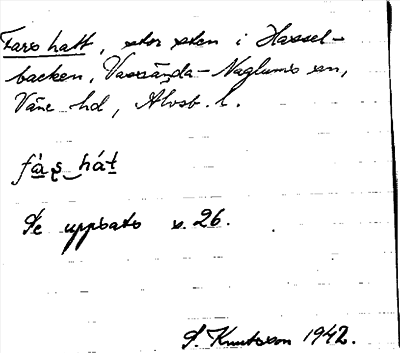 Fars hatt, stor sten i Hassel-
backen, Vassända-Naglums sn,
Väne hd, Älvsb. l.
fá̱ʂ‿hát̠
Se uppsats s. 26.
S. Knutsson 1942.